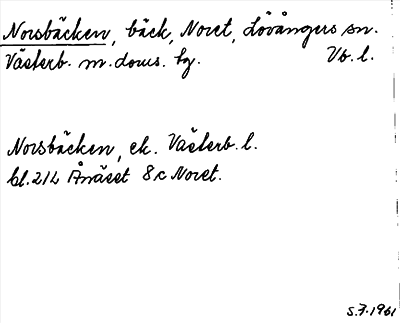 Norsbäcken, bäck, Noret, Lövångers sn.
Västerb. m. doms. tg. Vb. l.
Norsbäcken, ek. Västerb. l.
bl. 21 L Ånäset 8 c Noret.
S.7.1961